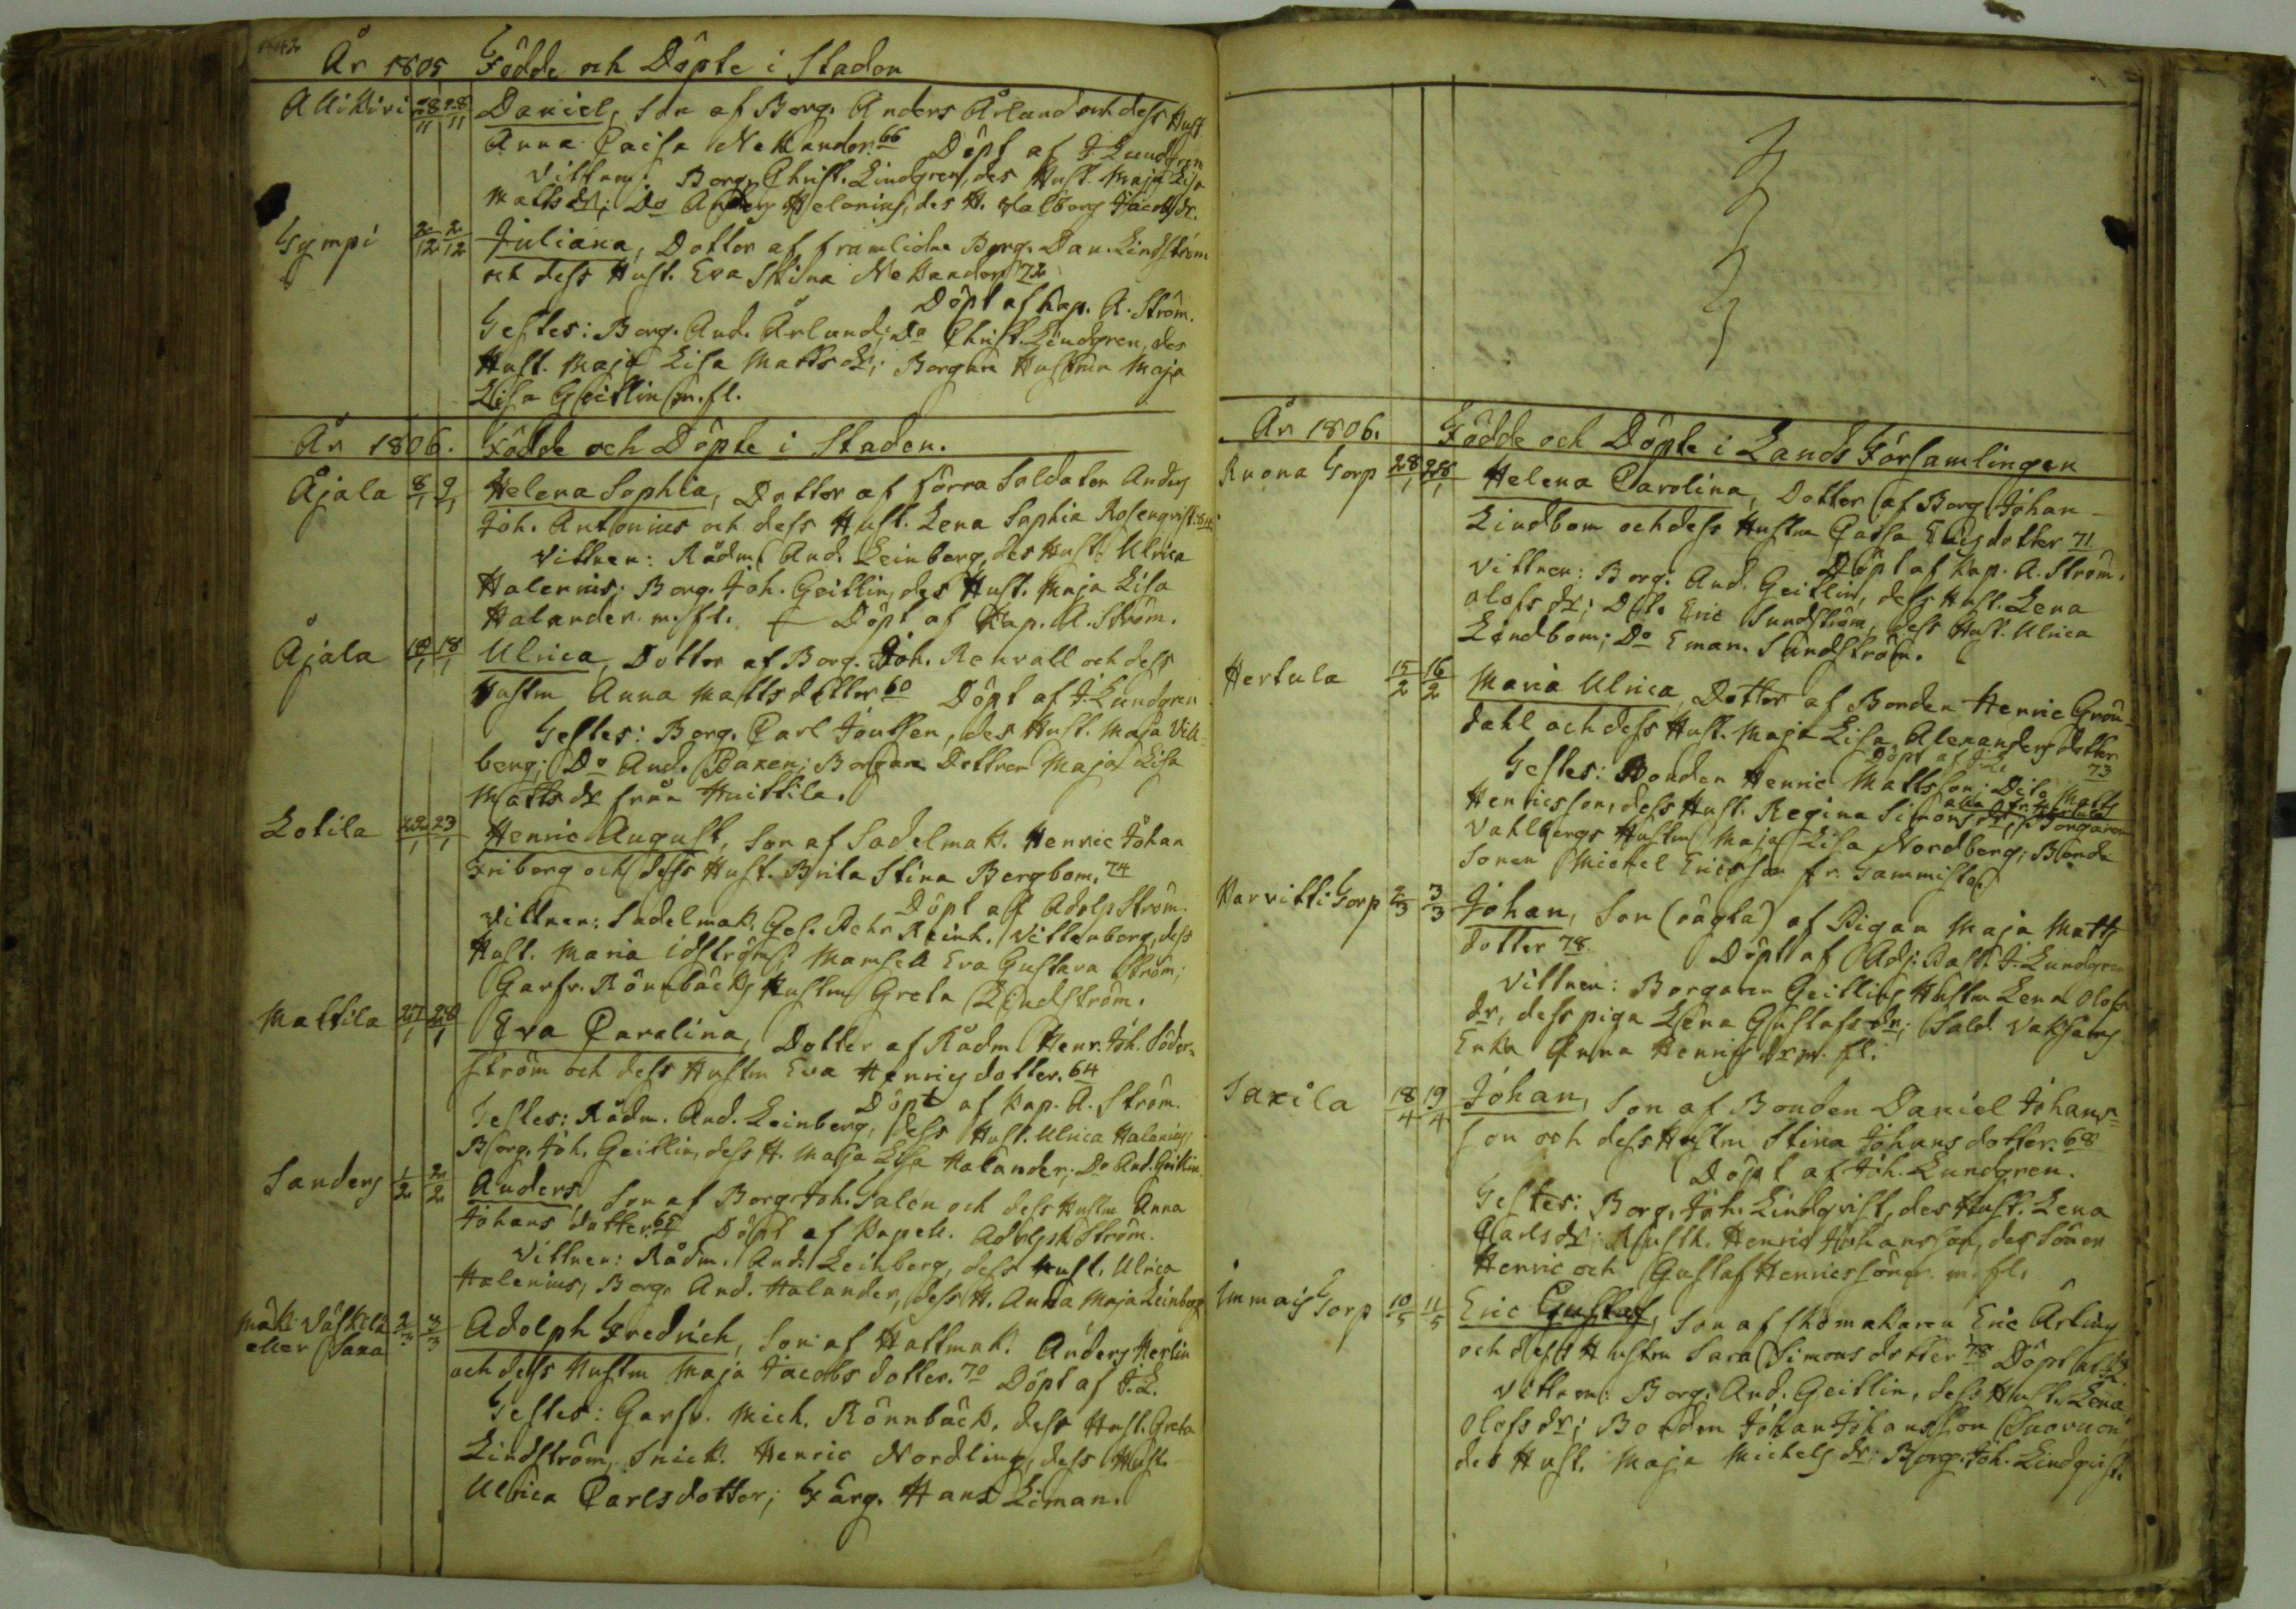 År 1805 Födde och Döpte i Staden
Allikivi 28/11 28/11 Daniel, Son af Borg. Anders Ärlund och dess Hust.
Anna Caisa Nekander. 66 Döpt af J. Lundgren
Vittnen: Borg. Christ. Lindgren, des Hust. Maja Lisa
Mattsdr; Do Anders Helenius, des H. Valborg Jacobsdr.
Tympi 2/12 2/12 Juliana, Dotter af framlidne Borg. Dan. Lindström
och dess Hust. Eva Stina Nekander 72
Döpt af Kap. A. Ström.
Testes: Borg. And. Ärlund; Do Christ. Lindgren, des
Hust. Maja Lisa Mattsdr; Borgare Hustrun Maja
Lisa Geitlin m.fl.
År 1806. Födde och Döpte i Staden.
Äjälä 8/1 9/1 Helena Sophia, Dotter af förra Soldaten Anders
Joh. Antonius och dess Hust. Lena Sophia Rosenqvist. 84
Vittnen: Rådm. And. Leinberg, des Hust. Ulrica
Halenius; Borg. Joh. Geitlin, des Hust. Maja Lisa
Halander. m. fl. Döpt af Kap. A. Ström.
Äjälä 18/1 18/1 Ulrica, Dotter af Borg. Joh. Renvall och dess
Hustru Anna Mattsdotter 60 Döpt af J. Lundgren
Testes: Borg. Carl Joutsen, des Hust. Maja Vik-
berg; Do And. Paxen; Borgare Dottren Maja Lisa
Mattsdr från Huittila.
Lotila 22/1 23/1 Henric August, Son af Sadelmak. Henric Johan
Friberg och dess Hust. Brita Stina Bergbom. 74
Döpt af Adolp Ström.
Vittnen: Sadelmak. Ges. Pehr Reinh. Vittenberg, dess
Hust. Maria Idström; Mamsell Eva Gustava Ström;
Garfv. Rönnbäcks Hustru Greta Lindström.
Mattila 27/1 28/1 Eva Carolina, Dotter af Rådm. Henr. Joh. Söder-
ström och dess Hustru Eva Henrigsdotter. 64
Döpt af Kap. A. Ström.
Testes: Rådm. And. Leinberg, dess Hust. Ulrica Halenius;
Borg. Joh. Geitlin, dess H. Maja Lisa Halander; Do And. Geitlin
Sanders 1/2 2/2 Anders, Son af Borg. Joh. Salen och dess Hustru Anna
Johans dotter. 65 Döpt af Kapell. Adolph Ström.
Vittnen: Rådm. And. Leinberg, dess Hust. Ulrica
Halenius; Borg. And. Halander, dess H. Anna Maja Leinberg
eller Saxa 2/3 3/3 Adolph Fredrich, Son af Hattmak. Anders Herlin
och dess Hustru Maja Jacobs dotter. 70 Döpt af J. L.
Testes: Garfv. Mich. Rönnbäck, dess Hust. Greta
Lindström, Snick. Henric Nordling, dess Hust.
Ulrica Carlsdotter; Färg. Hans Liman.
År 1806. Födde och Döpte i Lands Församlingen
Ruona Torp 28/1 28/1 Helena Carolina, Dotter af Borg. Johan
Lindbom och dess Hustru Caisa Ericsdotter 71
Döpt af Kap. A. Ström.
Vittnen: Borg. And. Geitlin, dess Hust. Lena
Olofsdr; Dito Eric Sundström, dess Hust. Ulrica
Lindbom; Do Eman. Sundström.
Hertula 15/2 16/2 Maria Ulrica, Dotter af Bonden Henric Grön-
dahl och dess Hust. Maja Lisa Alexandersdotter
Döpt af J. L. 73
Testes: Bonden Henric Mattsson; Dito Matts
Henricsson, dess Hust. Regina Simonsdr; Borgaren
Vahlbergs Hustru Maja Lisa Nordberg; Bonde
Sonen Michel Ericsson fr. Tammisto
Karvitti Torp 2/3 3/3 Johan, Son (oägta) af Pigan Maja Matts
dotter 78. Döpt af Adj. Past. J. Lundgren
Vittnen: Borgaren Geitlins Hustru Lena Olofs
dr, dess piga Lena Gustafsdr; Sold. Vaksams
Enka Anna Henrigsdr m. fl.
Saxila 18/4 19/4 Johan, Son af Bonden Daniel Johans-
son och dess Hustru Stina Johansdotter. 68
Döpt af Joh. Lundgren.
Testes: Borg. Joh. Lindqvist, des Hust. Lena
Carlsdr; Rusth. Henric Johansson, des Söner
Henric och Gustaf Henricssöner m. fl.
Immais Torp 10/5 11/5 Eric Gustaf, Son af Skomakaren Eric Ärling
och dess Hustru Sara Simonsdotter 78 Döpt af J. L.
Vittnen: Borg. And. Geitlin, dess Hust. Lena
Olofsdr; Bonden Johan Johansson Suovuori
des Hust. Maja Michelsdr; Borg. Joh. Lindqvist.